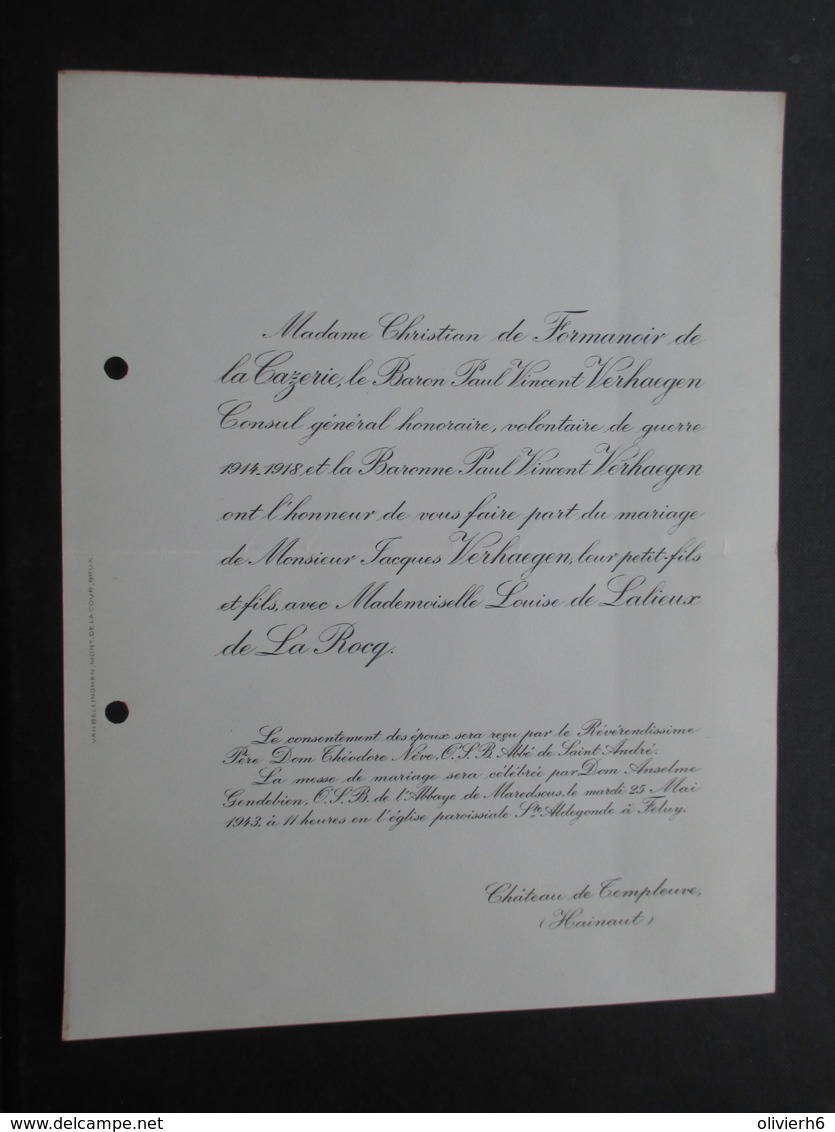 Madame Christian de Formanoir de
la Cazerie, le Baron Paul Vincent Verhaegen
Consul général honoraire, volontaire de guerre
1914-1918, et la Baronne Paul Vincent Verhaegen
ont l'honneur de vous faire part du mariage
de Monsieur Jacques Verhaegen, leur petit-fils
et fils, avec Mademoiselle Louise de Lalieux
de La Rocq.
Le consentement des époux sera reçu par le Révérendissime
Père Dom Théodore Nève, O.S.B. Abbé de Saint André.
La messe de mariage sera célébrée par Dom Anselme
Gendebien, O.S.B. de l'Abbaye de Maredsous, le mardi 25 Mai
1943, à 11 heures en l'église paroissiale Ste Aldegonde à Feluy.
Château de Templeuve,
(Hainaut)
VAN BELLINGHEN, MONT. DE LA COUR, BRUX.
delcampe.net
olivierh6